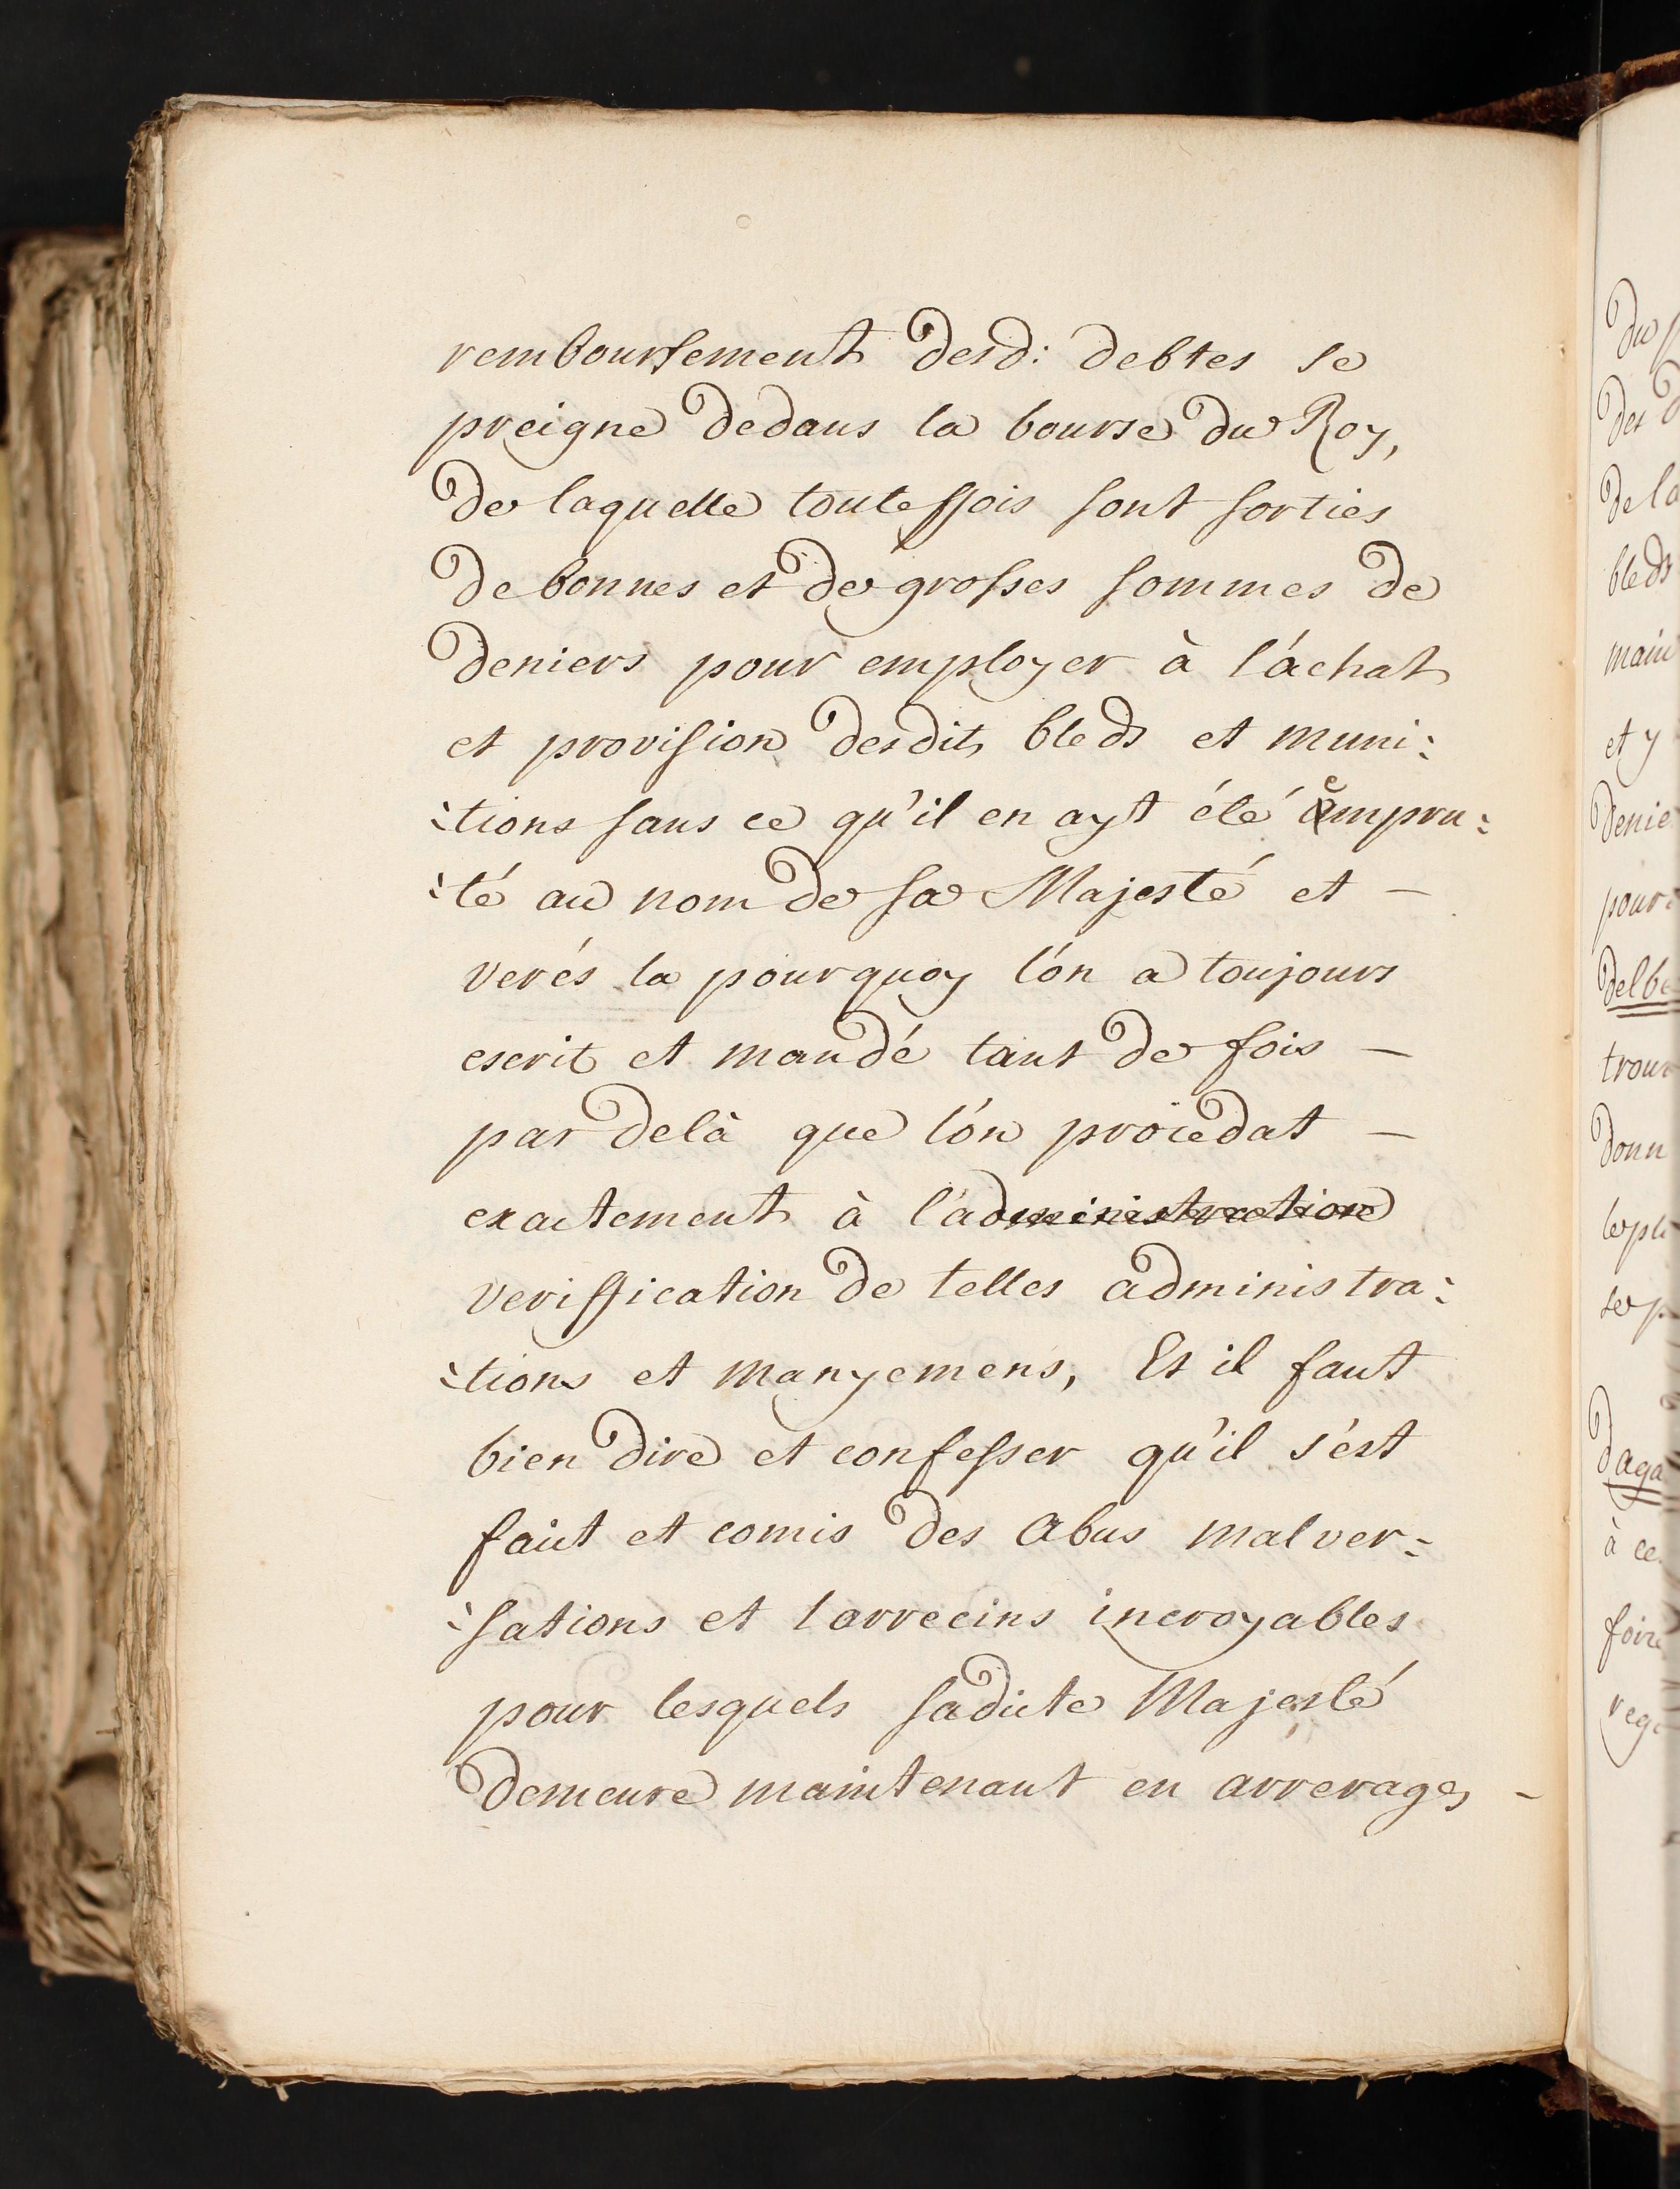 remboursement desd: debtes se
preigne dedans la bourse du Roy,
de laquelle touteffois sont sorties
de bonnes et de grosses sommes de
deniers pour employer à l'áchat
et provision desdits bleds et muni:
:tions sans ce qu'il en ayt été empru:
:té au nom de sa Majesté et –
verés la pourquoy l'ón a toujours
escrit et mandé tant de fois –
par delà que l'ón procedat –
exactement à l'administration
veriffication de telles administra:
:tions et manyemens, Et il faut
bien dire et confesser qu'il s'ést
faict et comis des abus malver:
:sations et larrecins incroyables
pour lesquels sadicte Majesté
demeure maintenant en arrerages –
du
des
de la
bleds
main
et y
denie
pour
delbe
trouv
donn
le plu
se p
daga
à ce
foire
rege